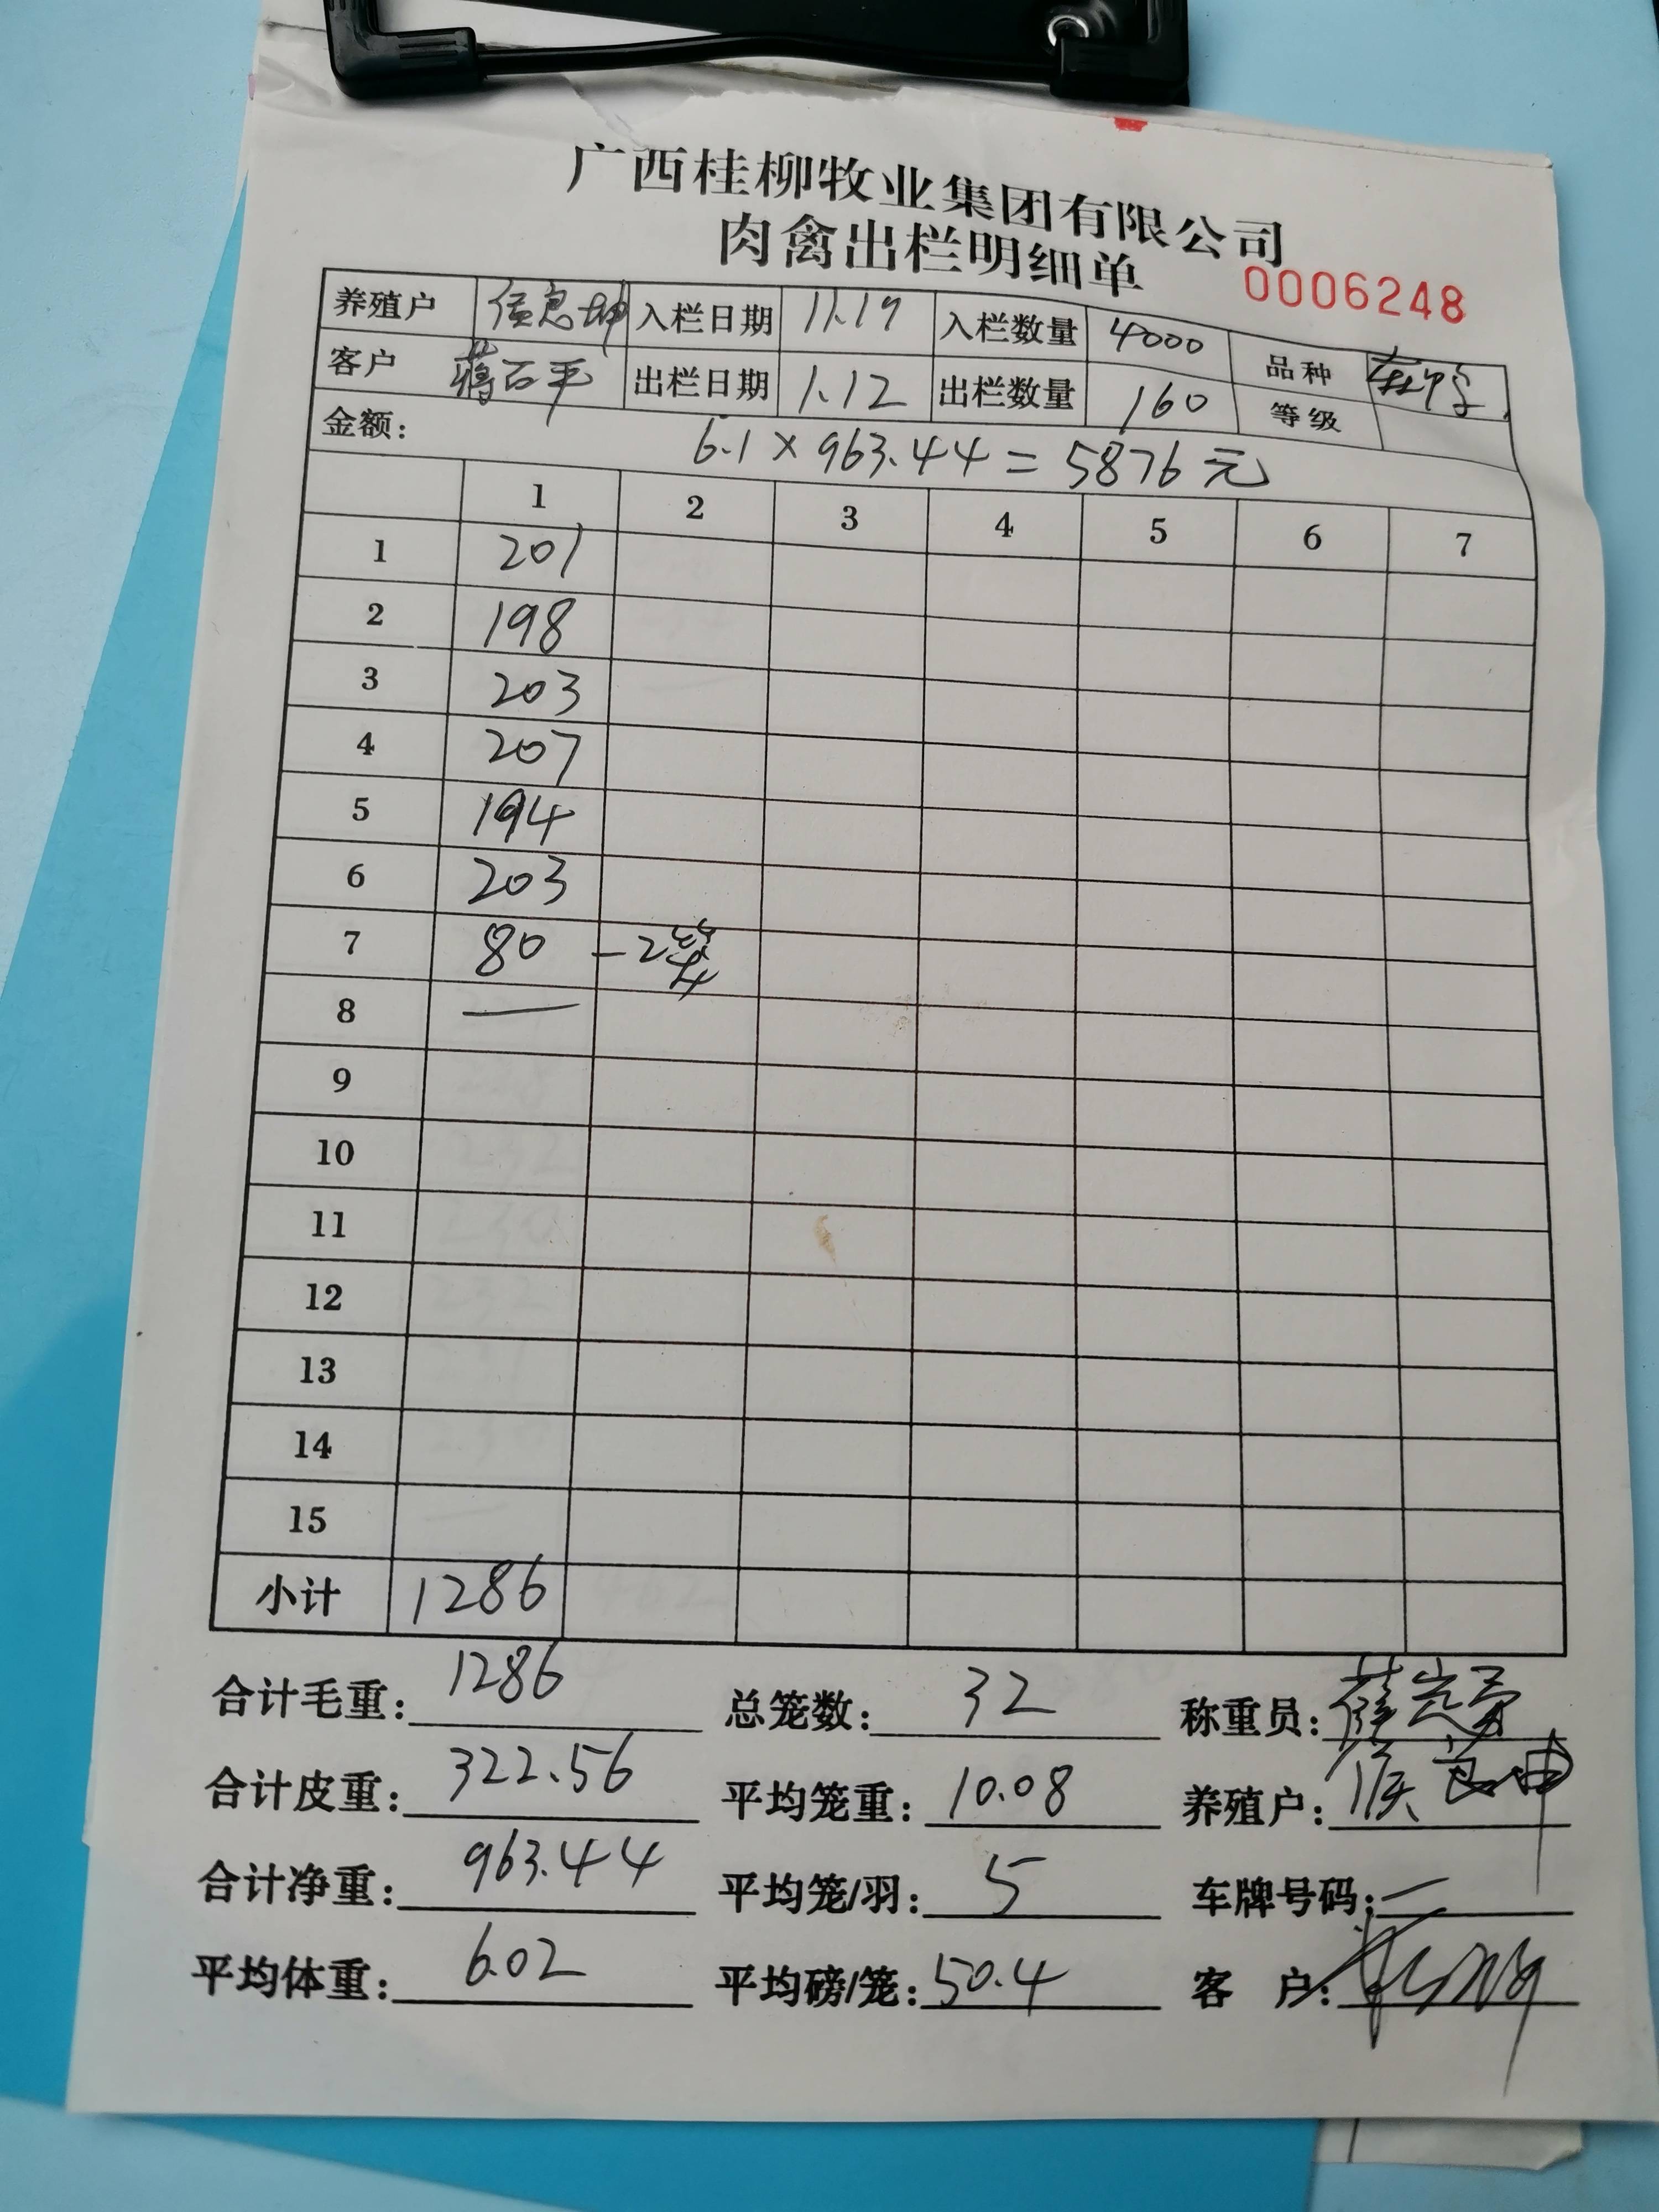 广西桂柳牧业集团有限公司
肉禽出栏明细单
0006248
养殖户 入栏日期 11.19 入栏数量 4000 品种
客户 蒋石平 出栏日期 1.12 出栏数量 160 等级
金额: 6.1×963.44=5876元
1 2 3 4 5 6 7
1 201
2 198
3 203
4 207
5 194
6 203
7 80 -2笼
8 —
9
10
11
12
13
14
15
小计 1286
合计毛重: 1286 总笼数: 32 称重员:
合计皮重: 322.56 平均笼重: 10.08 养殖户:
合计净重: 963.44 平均笼/羽: 5 车牌号码: —
平均体重: 6.02 平均磅/笼: 50.4 客 户: